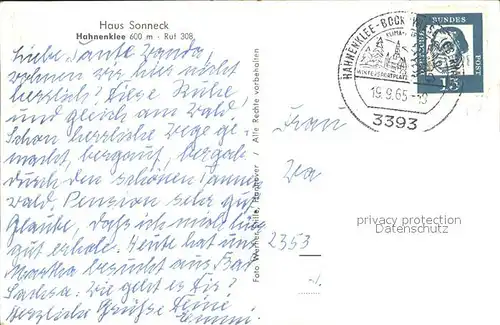 Haus Sonneck
Hahnenklee 600 m - Ruf 308
Liebe Tante Wanda,
wohnen wir hier nicht
herrlich? Diese Ruhe
und gleich am Wald.
Schon herrliche Wege ge-
macht, bergauf, bergab
durch den schönen Tannen-
wald. Pension sehr gut
Glaube, daß ich mich hier
gut erhole. Heute hat uns
Martha besucht aus Bad
Sachsa. Wie geht es Dir?
Herzliche Grüße Deine
Foto Werner Hannover / Alle Rechte vorbehalten
HAHNENKLEE-BOCK
WINTERSPORTPLATZ
19.9.65
3393
BUNDES
POST
15
Frau
Wa
2353
privacy protection
Datenschutz